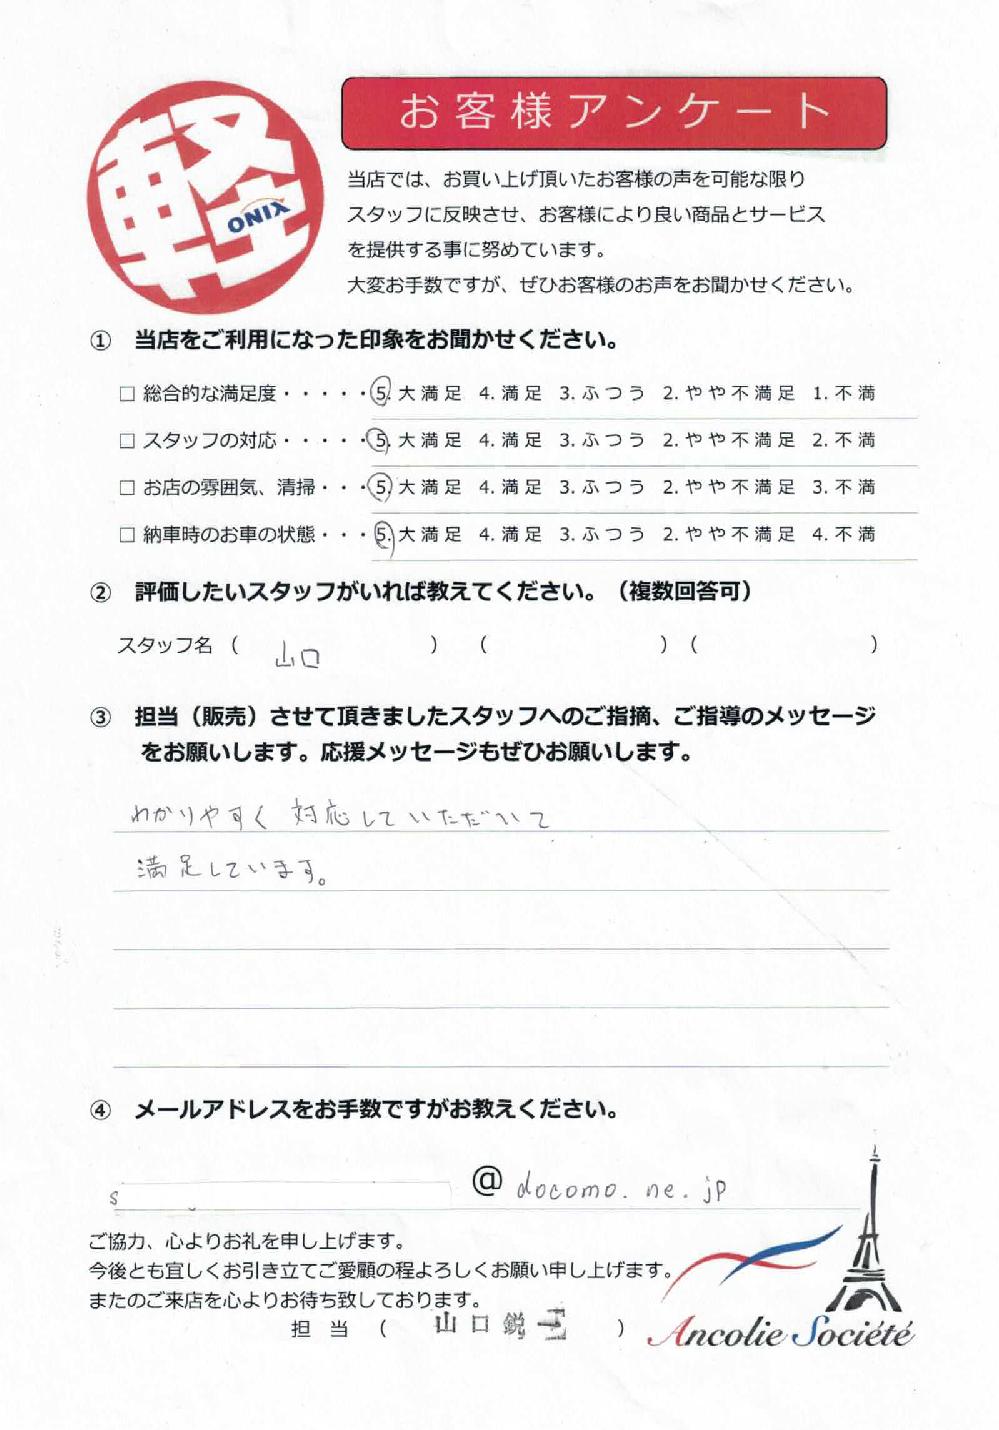 お客様アンケート
軽
ONIX
当店では、お買い上げ頂いたお客様の声を可能な限り
スタッフに反映させ、お客様により良い商品とサービス
を提供する事に努めています。
大変お手数ですが、ぜひお客様のお声をお聞かせください。
① 当店をご利用になった印象をお聞かせください。
□ 総合的な満足度・・・・・5. 大満足 4. 満足 3. ふつう 2. やや不満足 1. 不満
□ スタッフの対応・・・・・5. 大満足 4. 満足 3. ふつう 2. やや不満足 2. 不満
□ お店の雰囲気、清掃・・・5. 大満足 4. 満足 3. ふつう 2. やや不満足 3. 不満
□ 納車時のお車の状態・・・5. 大満足 4. 満足 3. ふつう 2. やや不満足 4. 不満
② 評価したいスタッフがいれば教えてください。（複数回答可）
スタッフ名（ 山口 ） （ ）（ ）
③ 担当（販売）させて頂きましたスタッフへのご指摘、ご指導のメッセージ
をお願いします。応援メッセージもぜひお願いします。
わかりやすく対応していただいて
満足しています。
④ メールアドレスをお手数ですがお教えください。
s @ docomo.ne.jp
ご協力、心よりお礼を申し上げます。
今後とも宜しくお引き立てご愛顧の程よろしくお願い申し上げます。
またのご来店を心よりお待ち致しております。
担 当 （ 山口鋭 ）
Ancolie Société